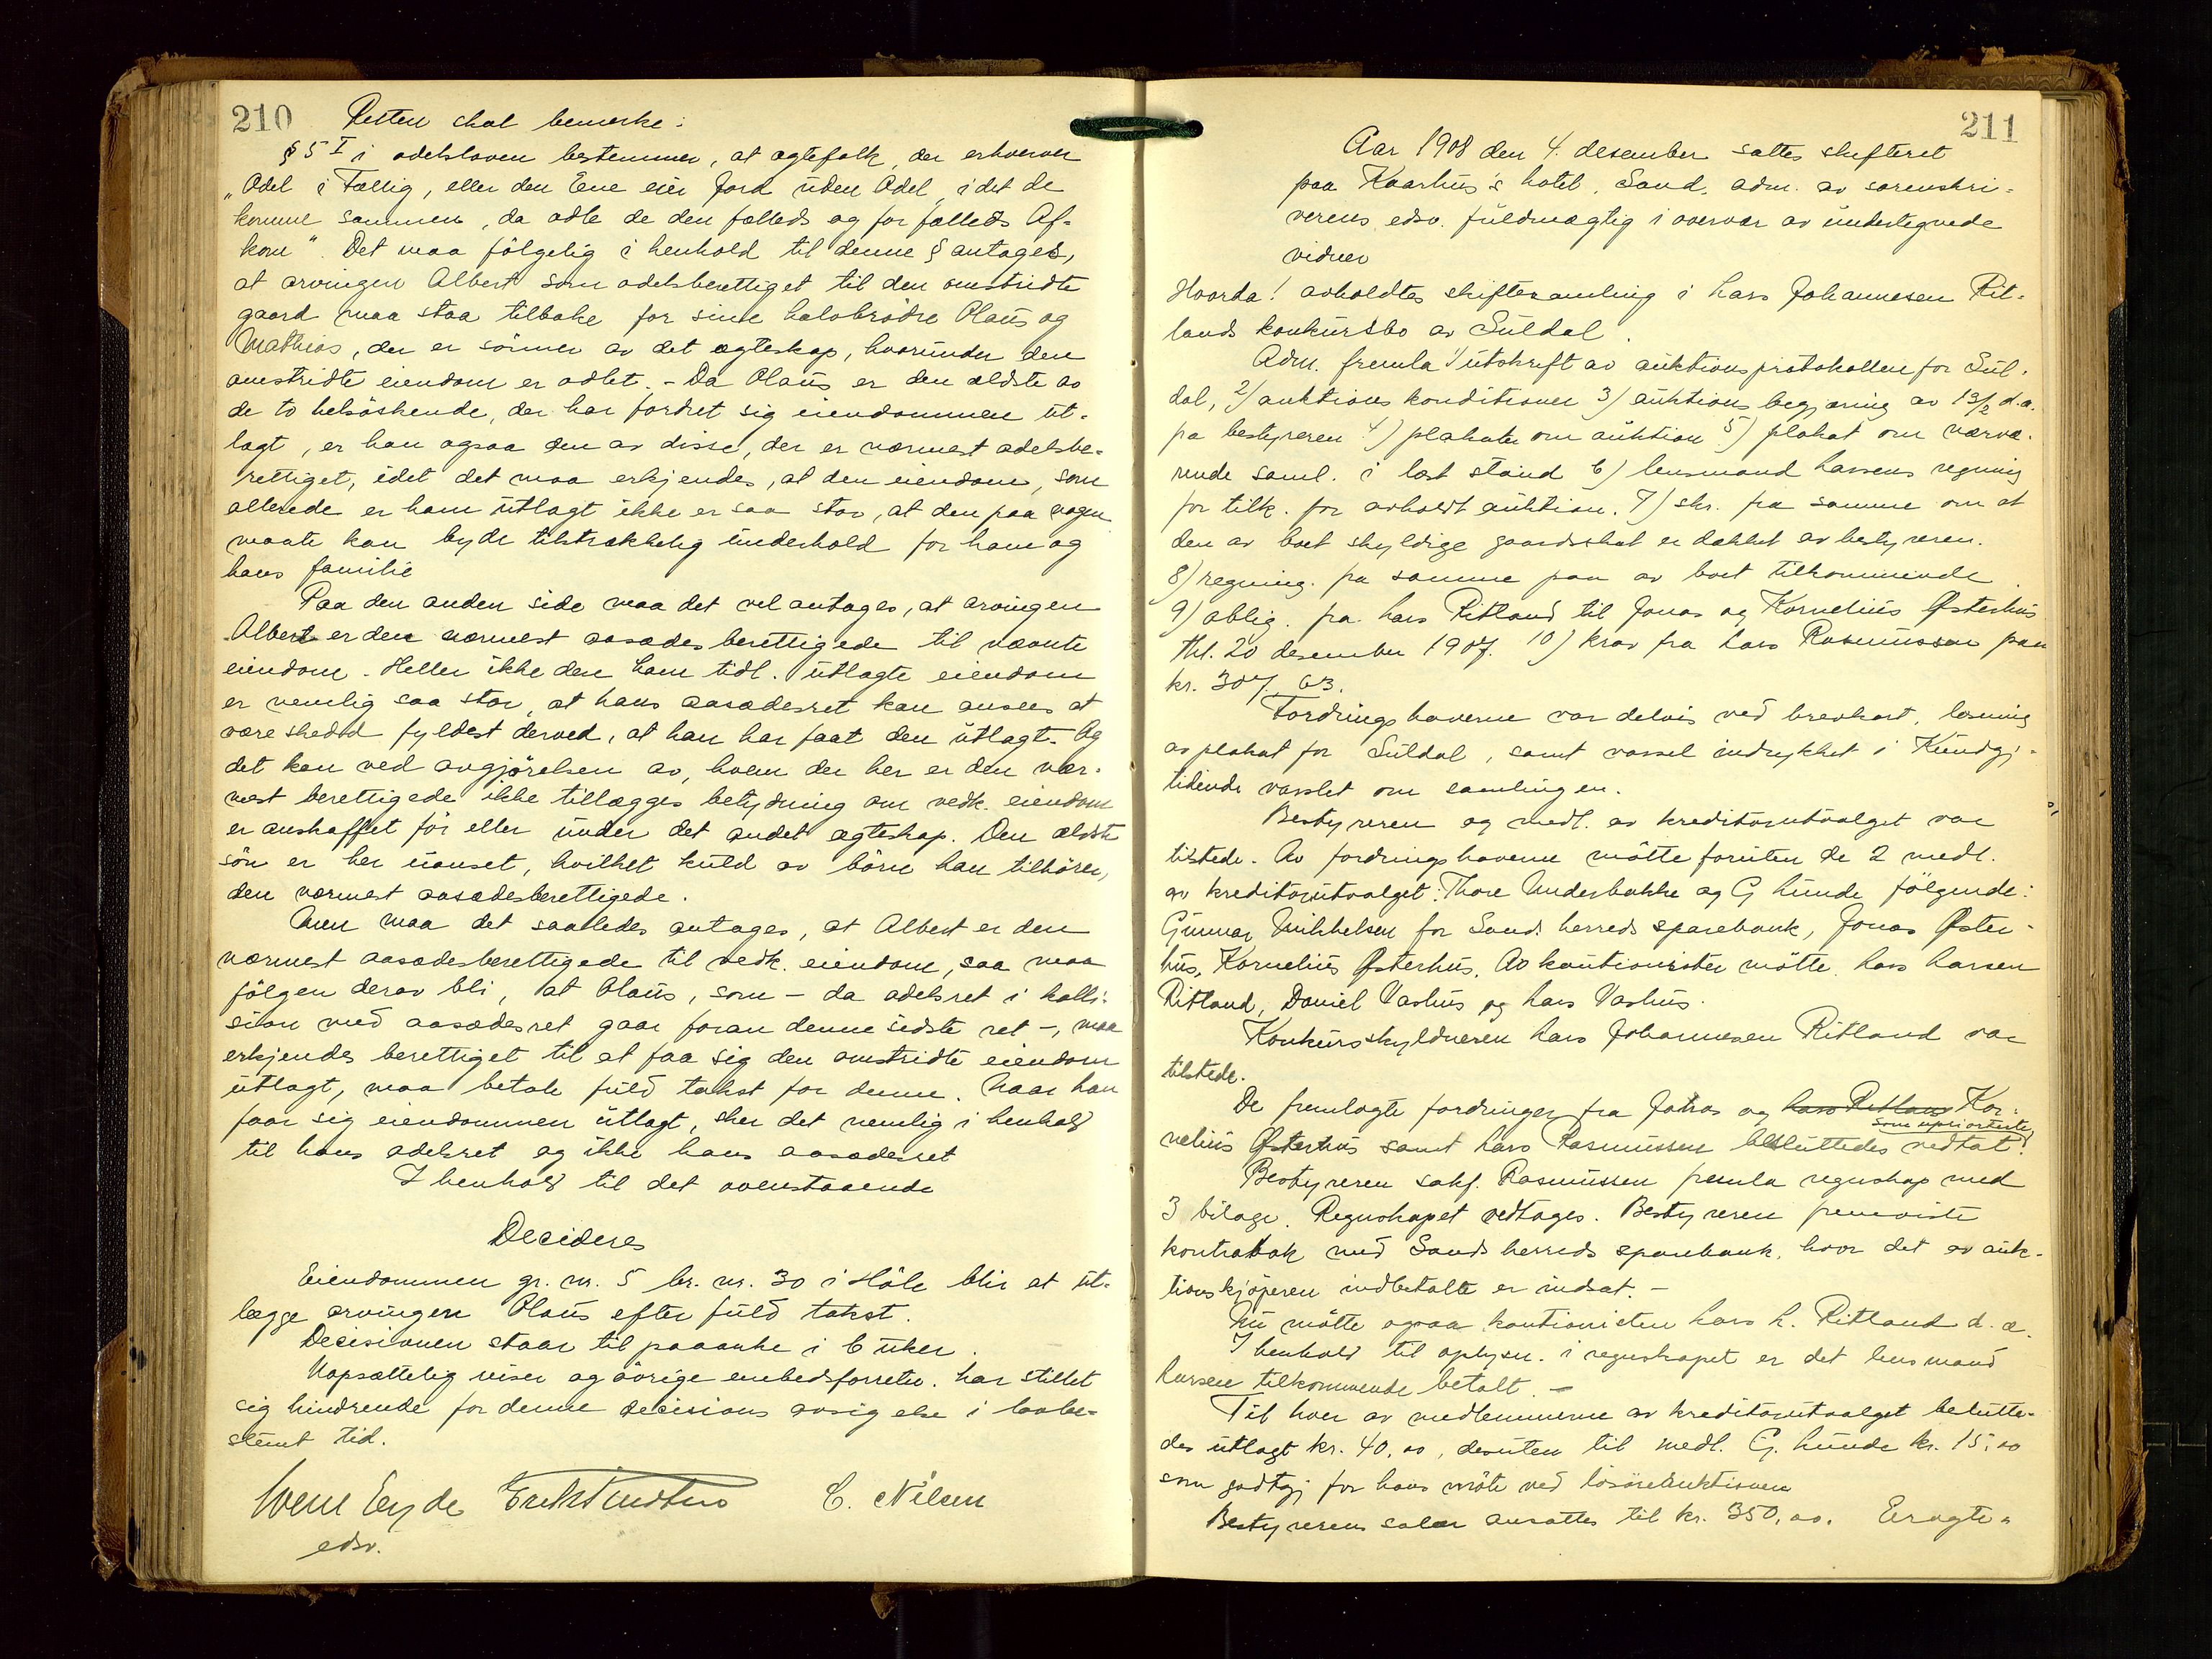 210
Retten skal bemerke:
§ 5 I i odelsloven bestemmer, at ægtefolk, der erhverver
"Odel i Fællig, eller den Ene eier Jord uden Odel, i det de
komme sammen, da odle de den fælleds og for fælleds Af=
kom". Det maa følgelig i henhold til denne § antages,
at arvingen Albert som odelsberettiget til den omstridte
gaard maa staa tilbake for sine halvbrødre Olaus og
Mathias, der er sønner av det ægteskap, hvorunder den
omstridte eiendom er odlet. - Da Olaus er den ældste av
de to helsøskende, der har fordret sig eiendommen ut-
lagt, er han ogsaa den av disse, der er nærmest odelsbe-
rettiget, idet det maa erkjendes, at den eiendom, som
allerede er ham utlagt ikke er saa stor, at den paa nogen
maate kan byde tilstrækkelig underhold for ham og
hans familie
Paa den anden side maa det vel antages, at arvingen
Albert er den nærmest aasædesberettigede til nævnte
eiendom. Heller ikke den ham tidl. utlagte eiendom
er nemlig saa stor, at hans aasædesret kan ansees at
være skedd fyldest derved, at han har faat den utlagt. Og
det kan ved avgjørelsen av, hvem der her er den nær-
mest berettigede ikke tillægges betydning om vedk. eiendom
er anskaffet før eller under det andet ægteskap. Den ældste
søn er her uanset, hvilket kuld av børn han tilhører,
den nærmest aasædesberettigede.
Men maa det saaledes antages, at Albert er den
nærmest aasædesberettigede til vedk. eiendom, saa maa
følgen derav bli, at Olaus, som - da odelsret i kolli-
sion med aasædesret gaar foran denne sidste ret -, maa
erkjendes berettiget til at faa sig den omstridte eiendom
utlagt, maa betale fuld takst for denne. Naar han
faar sig eiendommen utlagt, sker det nemlig i henhold
til hans odelsret og ikke hans aasædesret
I henhold til det ovenstaaende
Decideres
Eiendommen gr. nr. 5 br. nr. 30 i Høle blir at ut-
lægge arvingen Olaus efter fuld takst.
Decisionen staar til paaanke i 6 uker.
Uopsættelig reiser og øvrige embedsforretn. har stillet
sig hindrende for denne decisions avsigelse i lovbe-
stemt tid.
C. Nilsen
edsv.
211
Aar 1908 den 4. desember sattes skifteret
paa Kaarhus's hotel, Sand, adm. av sorenskri-
verens edsv. fuldmægtig i overvær av undertegnede
vidner
Hvorda! avholdtes skiftesamling i Lars Johannesen Rit-
lands konkursbo av Suldal.
Adm. fremla 1) utskrift av auktionsprotokollen for Sul-
dal, 2) auktionskonditioner 3) auktionsbegjæring av 13/2 d.a.
fra bestyreren 4) plakater om auktion 5) plakat om nærvæ-
rende saml. i læst stand 6) lensmand Larsens regning
for tilk. for avholdt auktion. 7) skr. fra samme om at
den av boet skyldige gaardsskat er dækket av bestyreren.
8) regning. fra samme paa av boet tilkommende.
9) oblig. fra Lars Ritland til Jonas og Kornelius Østerhus
thl. 20 desember 1907. 10) krav fra Lars Rasmussen paa
kr. 307, 63.
Fordringshaverne var delvis ved brevkort, læsning
av plakat for Suldal, samt varsel indrykket i Kundgj-
tidende varslet om samlingen.
Bestyreren og medl. av kreditorutvalget var
tilstede. Av fordringshaverne møtte foruten de 2 medl.
av kreditorutvalget: Thore Underbakke og G Lunde følgende:
Gunnar Mikkelsen for Sand herreds sparebank, Jonas Øster-
hus, Kornelius Østerhus. Av kautionister møtte Lars Larsen
Ritland, Daniel Vashus og Lars Vashus.
Konkursskyldneren Lars Johannesen Ritland var
tilstede.
De fremlagte fordringer fra Jonas og Lars Ritland Kor-
som uprioriterte
nelius Østerhus samt Lars Rasmussen besluttedes vedtat.
Bestyreren sakf. Rasmussen fremla regnskap med
3 bilage. Regnskapet vedtages. Bestyreren fremviste
kontrabok med Sands herreds sparebank, hvor det av auk-
tionskjøperen indbetalte er indsat. -
Nu møtte ogsaa kautionisten Lars L. Ritland d. æ.
I henhold til oplysn. i regnskapet er det lensmand
Larsen tilkommende betalt. -
Til hver av medlemmerne av kreditorutvalget beslutte-
des utlagt kr. 40,00, desuten til medl. G. Lunde kr. 15,00
som godtgj for hans møte ved løsøreauktionen
Bestyrerens salær ansattes til kr. 350,00. Eragte-